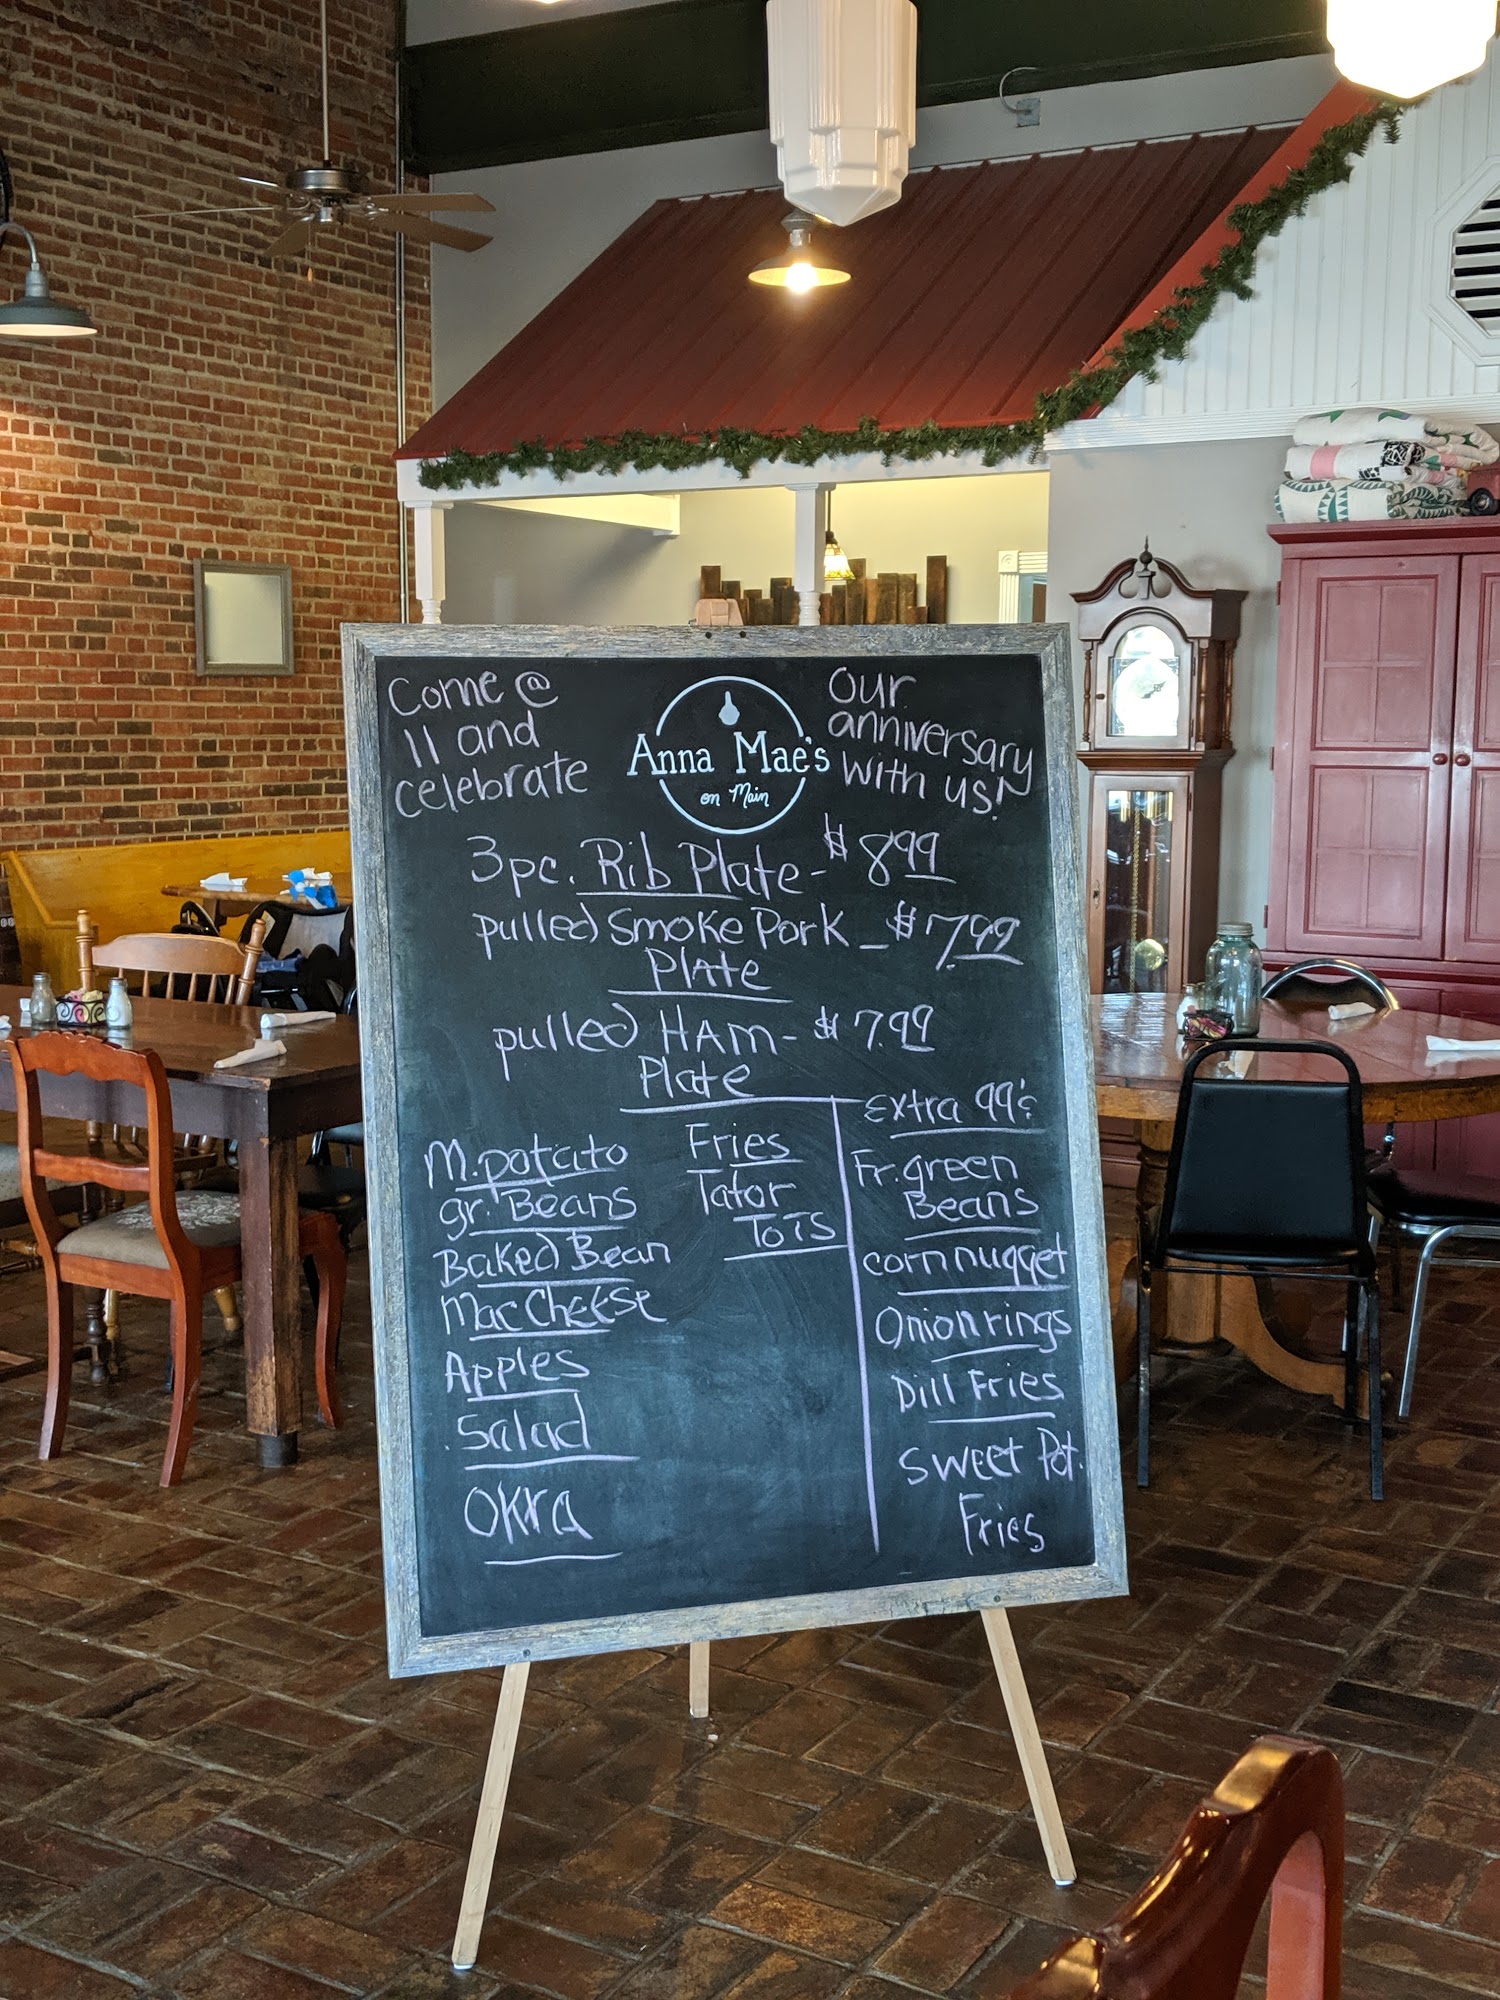 Come @
11 and
celebrate
Anna Mae's
on Main
our
anniversary
with us!
3pc. Rib Plate - $8.99
pulled Smoke Pork - $7.99
Plate
pulled HAM - $7.99
Plate
M. potato
gr. Beans
Baked Bean
Mac Cheese
Apples
Salad
OKRA
Fries
Tator
ToTS
Extra 99¢
Fr. green
Beans
corn nugget
Onion rings
Dill Fries
Sweet Pot.
Fries